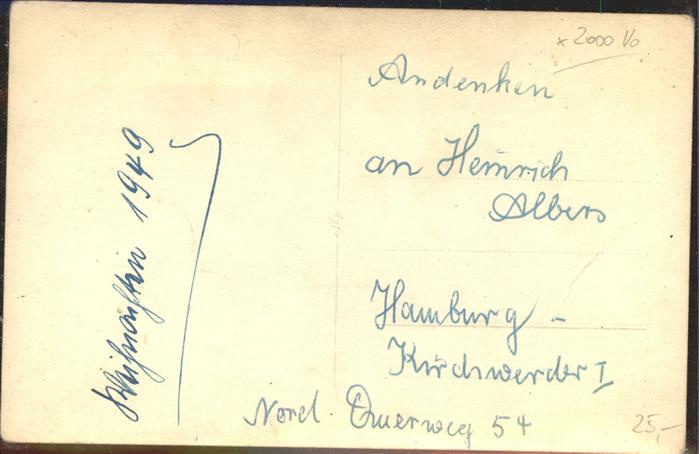 x 2000 Vo
Andenken
an Heinrich
Albers
Hamburg -
Kirchwerder I
Nord. Querweg 54
Weihnachten 1949
25,-